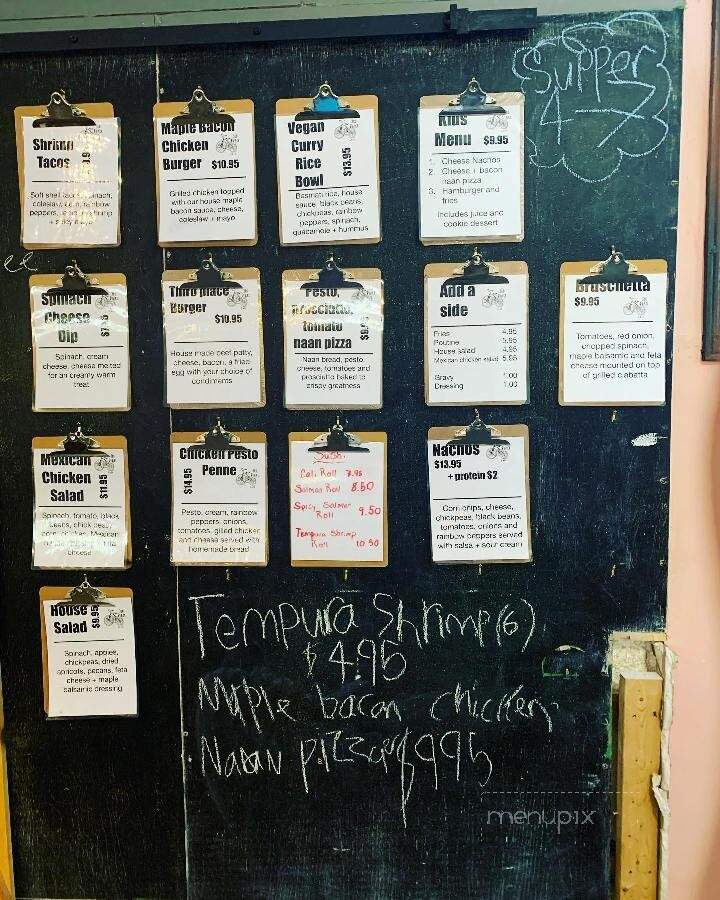 Supper
4-7
Shrimp
Tacos
Soft shell tacos, spinach,
coleslaw, corn, rainbow
peppers, shrimp
+ spicy mayo
Maple Bacon
Chicken
Burger $10.95
Grilled chicken topped
with our house maple
bacon sauce, cheese,
coleslaw + mayo
Vegan
Curry
Rice
Bowl
$13.95
Basmati rice, house
sauce, black beans,
chickpeas, rainbow
peppers, spinach,
guacamole + hummus
Kids
Menu $9.95
1. Cheese Nachos
2. Cheese + bacon
naan pizza
3. Hamburger and
fries
Includes juice and
cookie dessert
Spinach
Cheese
Dip
Spinach, cream
cheese, cheese melted
for an creamy warm
treat
Third place
Burger
$10.95
House made beef patty,
cheese, bacon, a fried
egg with your choice of
condiments
Pesto,
Prosciutto,
tomato
naan pizza
Naan bread, pesto,
cheese, tomatoes and
prosciutto baked to
crispy greatness
Add a
side
Fries 4.95
Poutine 5.95
House salad 4.95
Mexican chicken salad 5.95
Gravy 1.00
Dressing 1.00
Bruschetta
$9.95
Tomatoes, red onion,
chopped spinach,
maple balsamic and feta
cheese mounted on top
of grilled ciabatta
Mexican
Chicken
Salad
$11.95
Spinach, tomato, black
beans, chick peas,
corn, chicken, Mexican
cheese
Chicken Pesto
Penne
$14.95
Pesto, cream, rainbow
peppers, onions,
tomatoes, grilled chicken
and cheese served with
homemade bread
Sushi
Cali Roll 7.95
Salmon Roll 8.50
Spicy Salmon
Roll 9.50
Tempura Shrimp
Roll 10.50
Nachos
$13.95
+ protein $2
Corn chips, cheese,
chickpeas, black beans,
tomatoes, onions and
rainbow peppers served
with salsa + sour cream
House
Salad
$9.95
Spinach, apples,
chickpeas, dried
apricots, pecans, feta
cheese + maple
balsamic dressing
Tempura Shrimp (6)
$4.95
Maple bacon chicken
Naan pizza $9.95
menupix